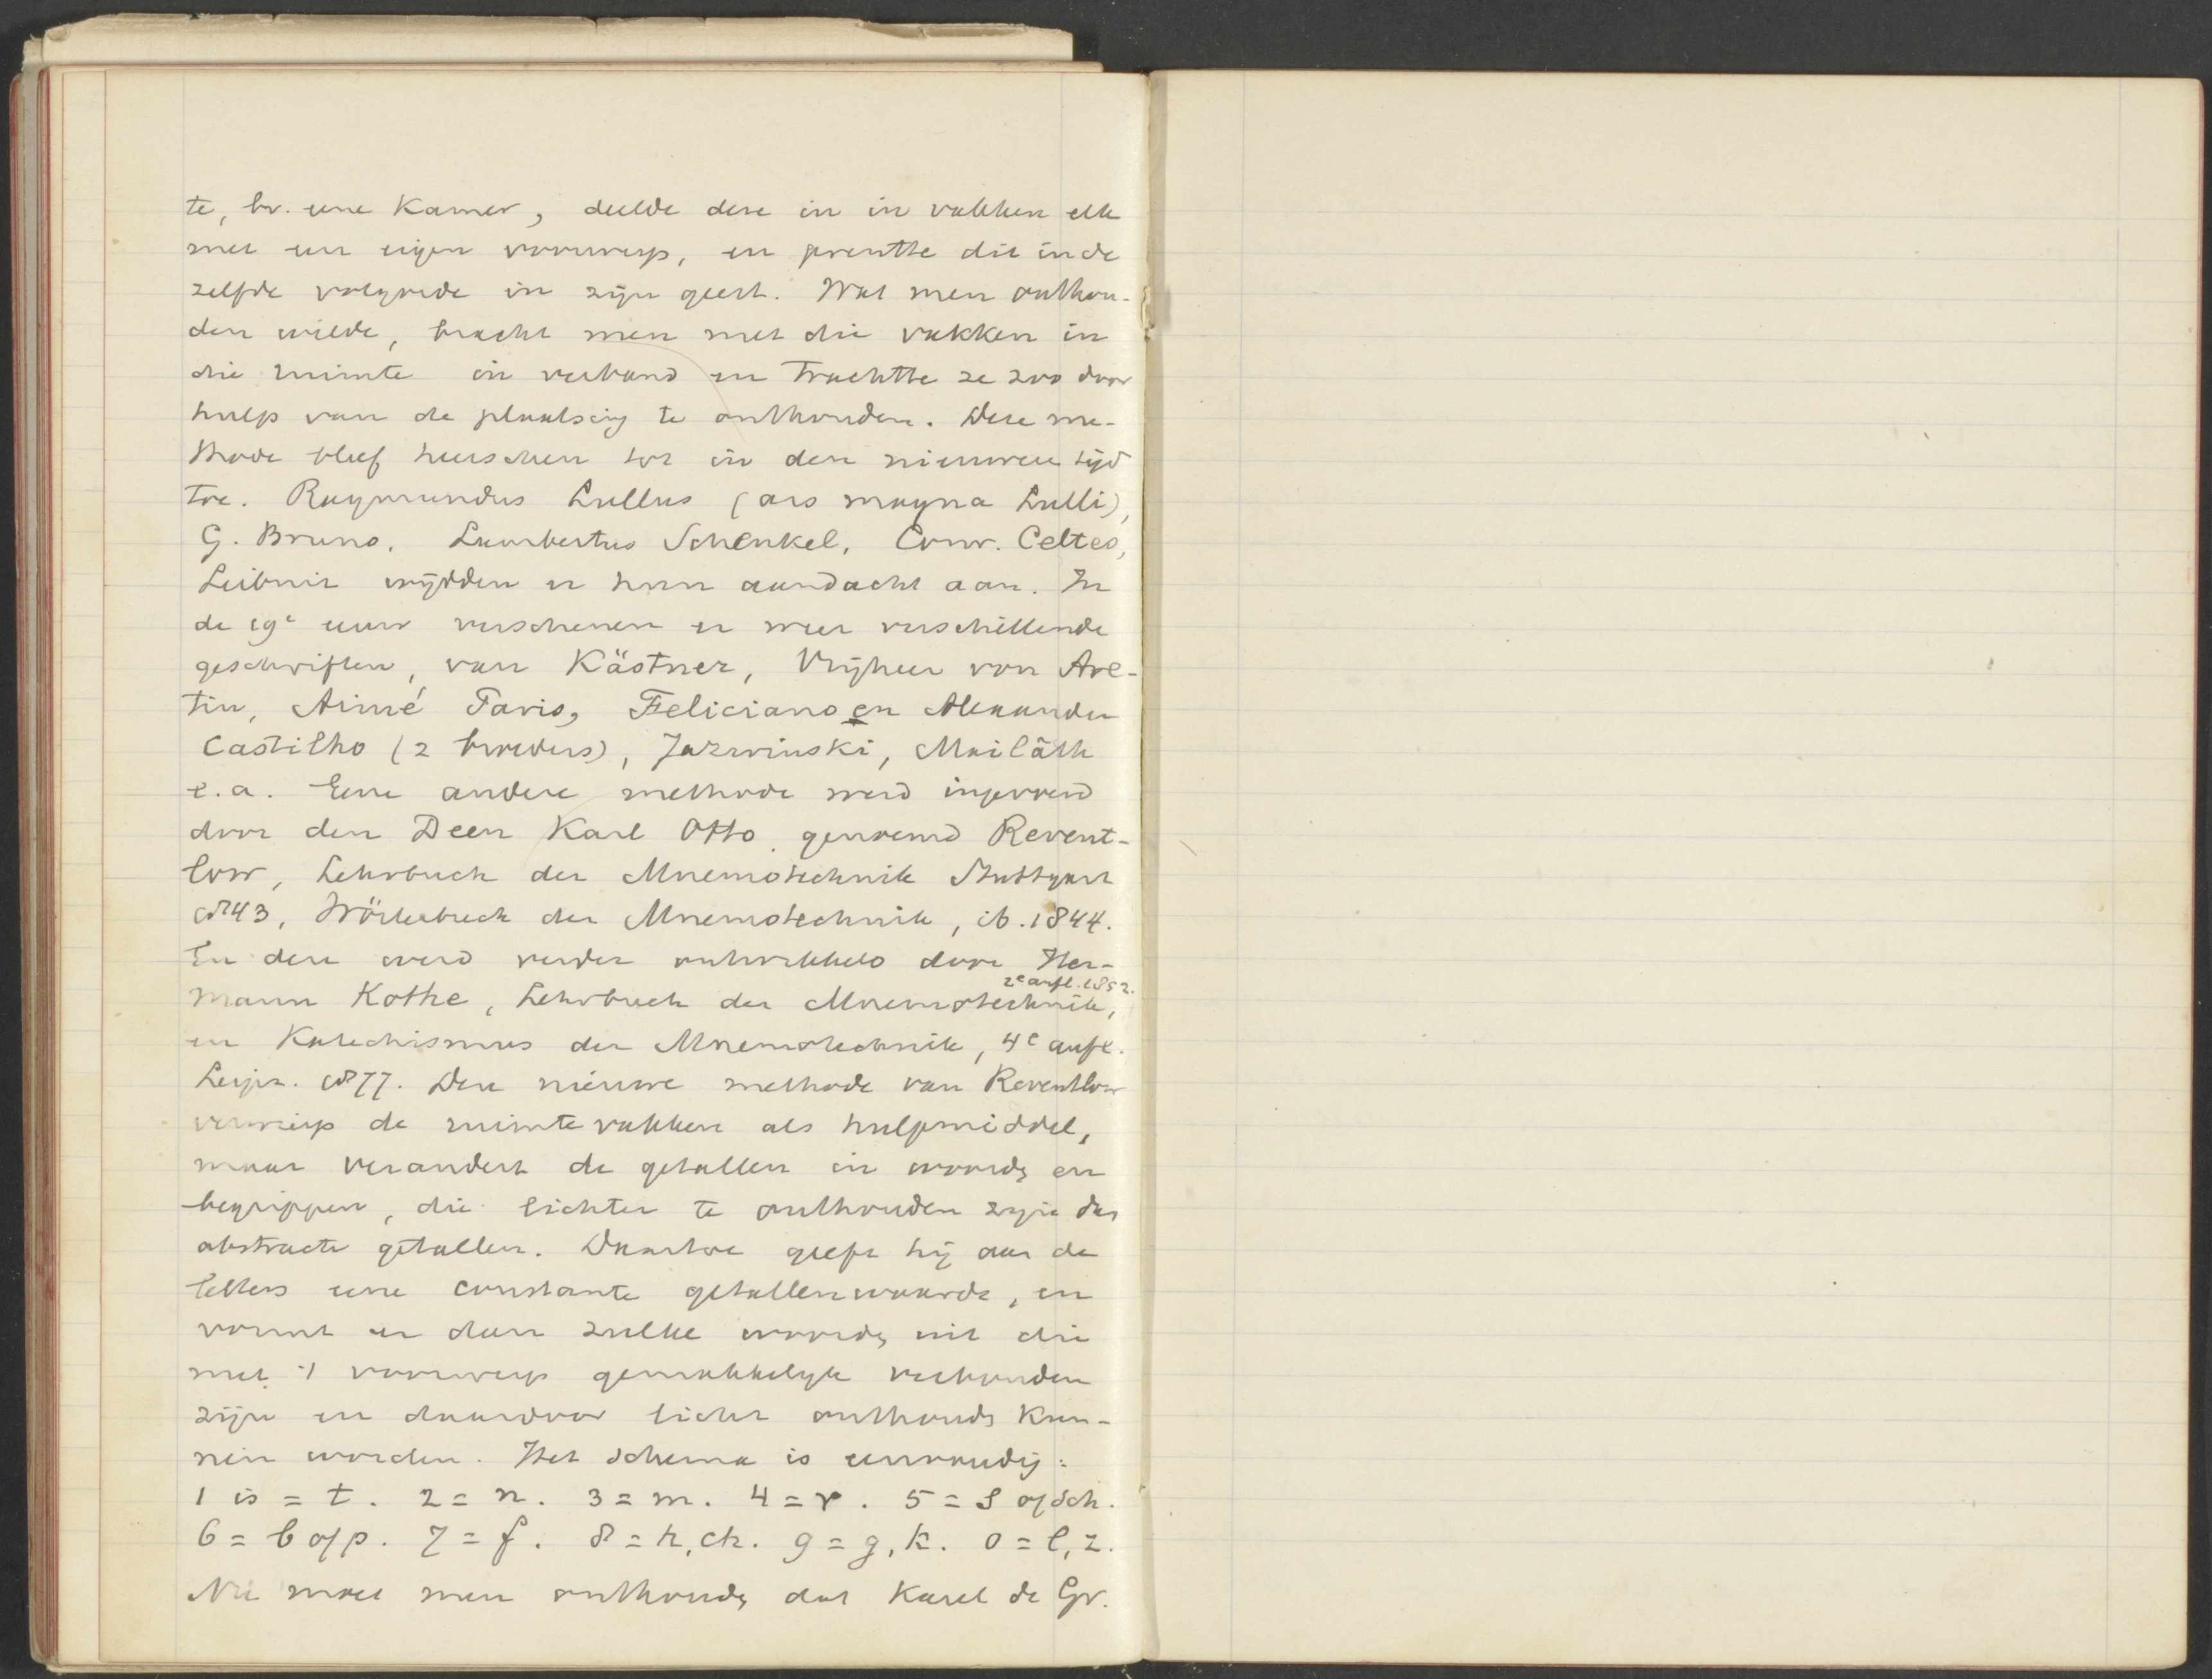 te, bv. eene Kamer, deelde deze in in vakken elk
met een eigen voorwerp, en prentte dit in de
zelfde volgorde in zijn geest. Wat men onthou-
den wilde, bracht men met die vakken in
die ruimte in verband en trachtte ze zoo door
hulp van de plaatsing te onthouden. Deze me-
thode bleef heerschen tot in den nieuwere tijd
toe. Raymundus Lullus (ars magna Lulli),
G. Bruno. Lambertus Schenkel, Conr. Celtes,
Leibniz wijdden er hun aandacht aan. In
de 19e eeuw verschenen er weer verschillende
geschriften, van Kästner, Vrijheer von Are-
tin, Aimé Paris, Feliciano en Alexander
Castilho (2 broeders), Jazwinski, Mailáth
e.a. Eene andere methode werd ingevoerd
door den Deen Karl Otto. genoemd Revent-
low, Lehrbuch der Mnemotechnik Stuttgart
1843, Wörterbuch der Mnemotechnik, ib. 1844.
En deze werd verder ontwikkeld door Her-
2e aufl. 1852.
mann Kothe, Lehrbuch der Mnemotechnik,
en Katechismus der Mnemotechnik, 4e aufl.
Leipz. 1877. Deze nieuwe methode van Reventlow
verwierp de ruimtevakken als hulpmiddel,
maar verandert de getallen in woorden en
begrippen, die lichter te onthouden zijn dan
abstracte getallen. Daartoe geeft hij aan de
letters eene constante getallenwaarde, en
vormt er dan zulke woorden uit die
met 't voorwerp gemakkelijk verbonden
zijn en daardoor licht onthouden kun-
nen worden. Het schema is eenvoudig:
1 is = t. 2 = n. 3 = m. 4 = r. 5 = s of sch.
6 = b of p. 7 = f. 8 = h, ch. 9 = g, k. 0 = l, z.
Nu moet men onthouden dat Karel de Gr.